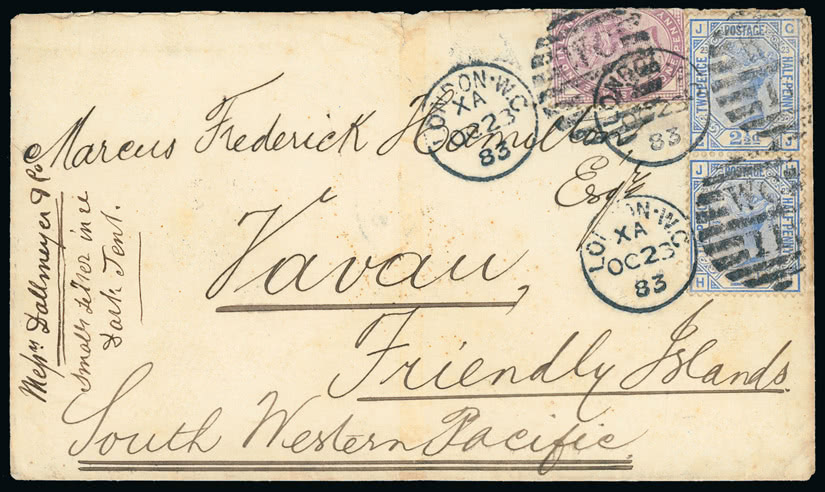 Marcus Frederick Hamilton
Esqr
Vavau,
Friendly Islands
South Western Pacific
Messrs Dallmeyer
Small
Dark Tent.
LONDON·W.C
XA
OC23
83
LONDON·W.C
XA
OC23
83
LONDON
OC23
83
WC
11
POSTAGE
TWO PENCE
HALFPENNY
2½
J
G
G
J
POSTAGE
HALFPENNY
J
H
H
J